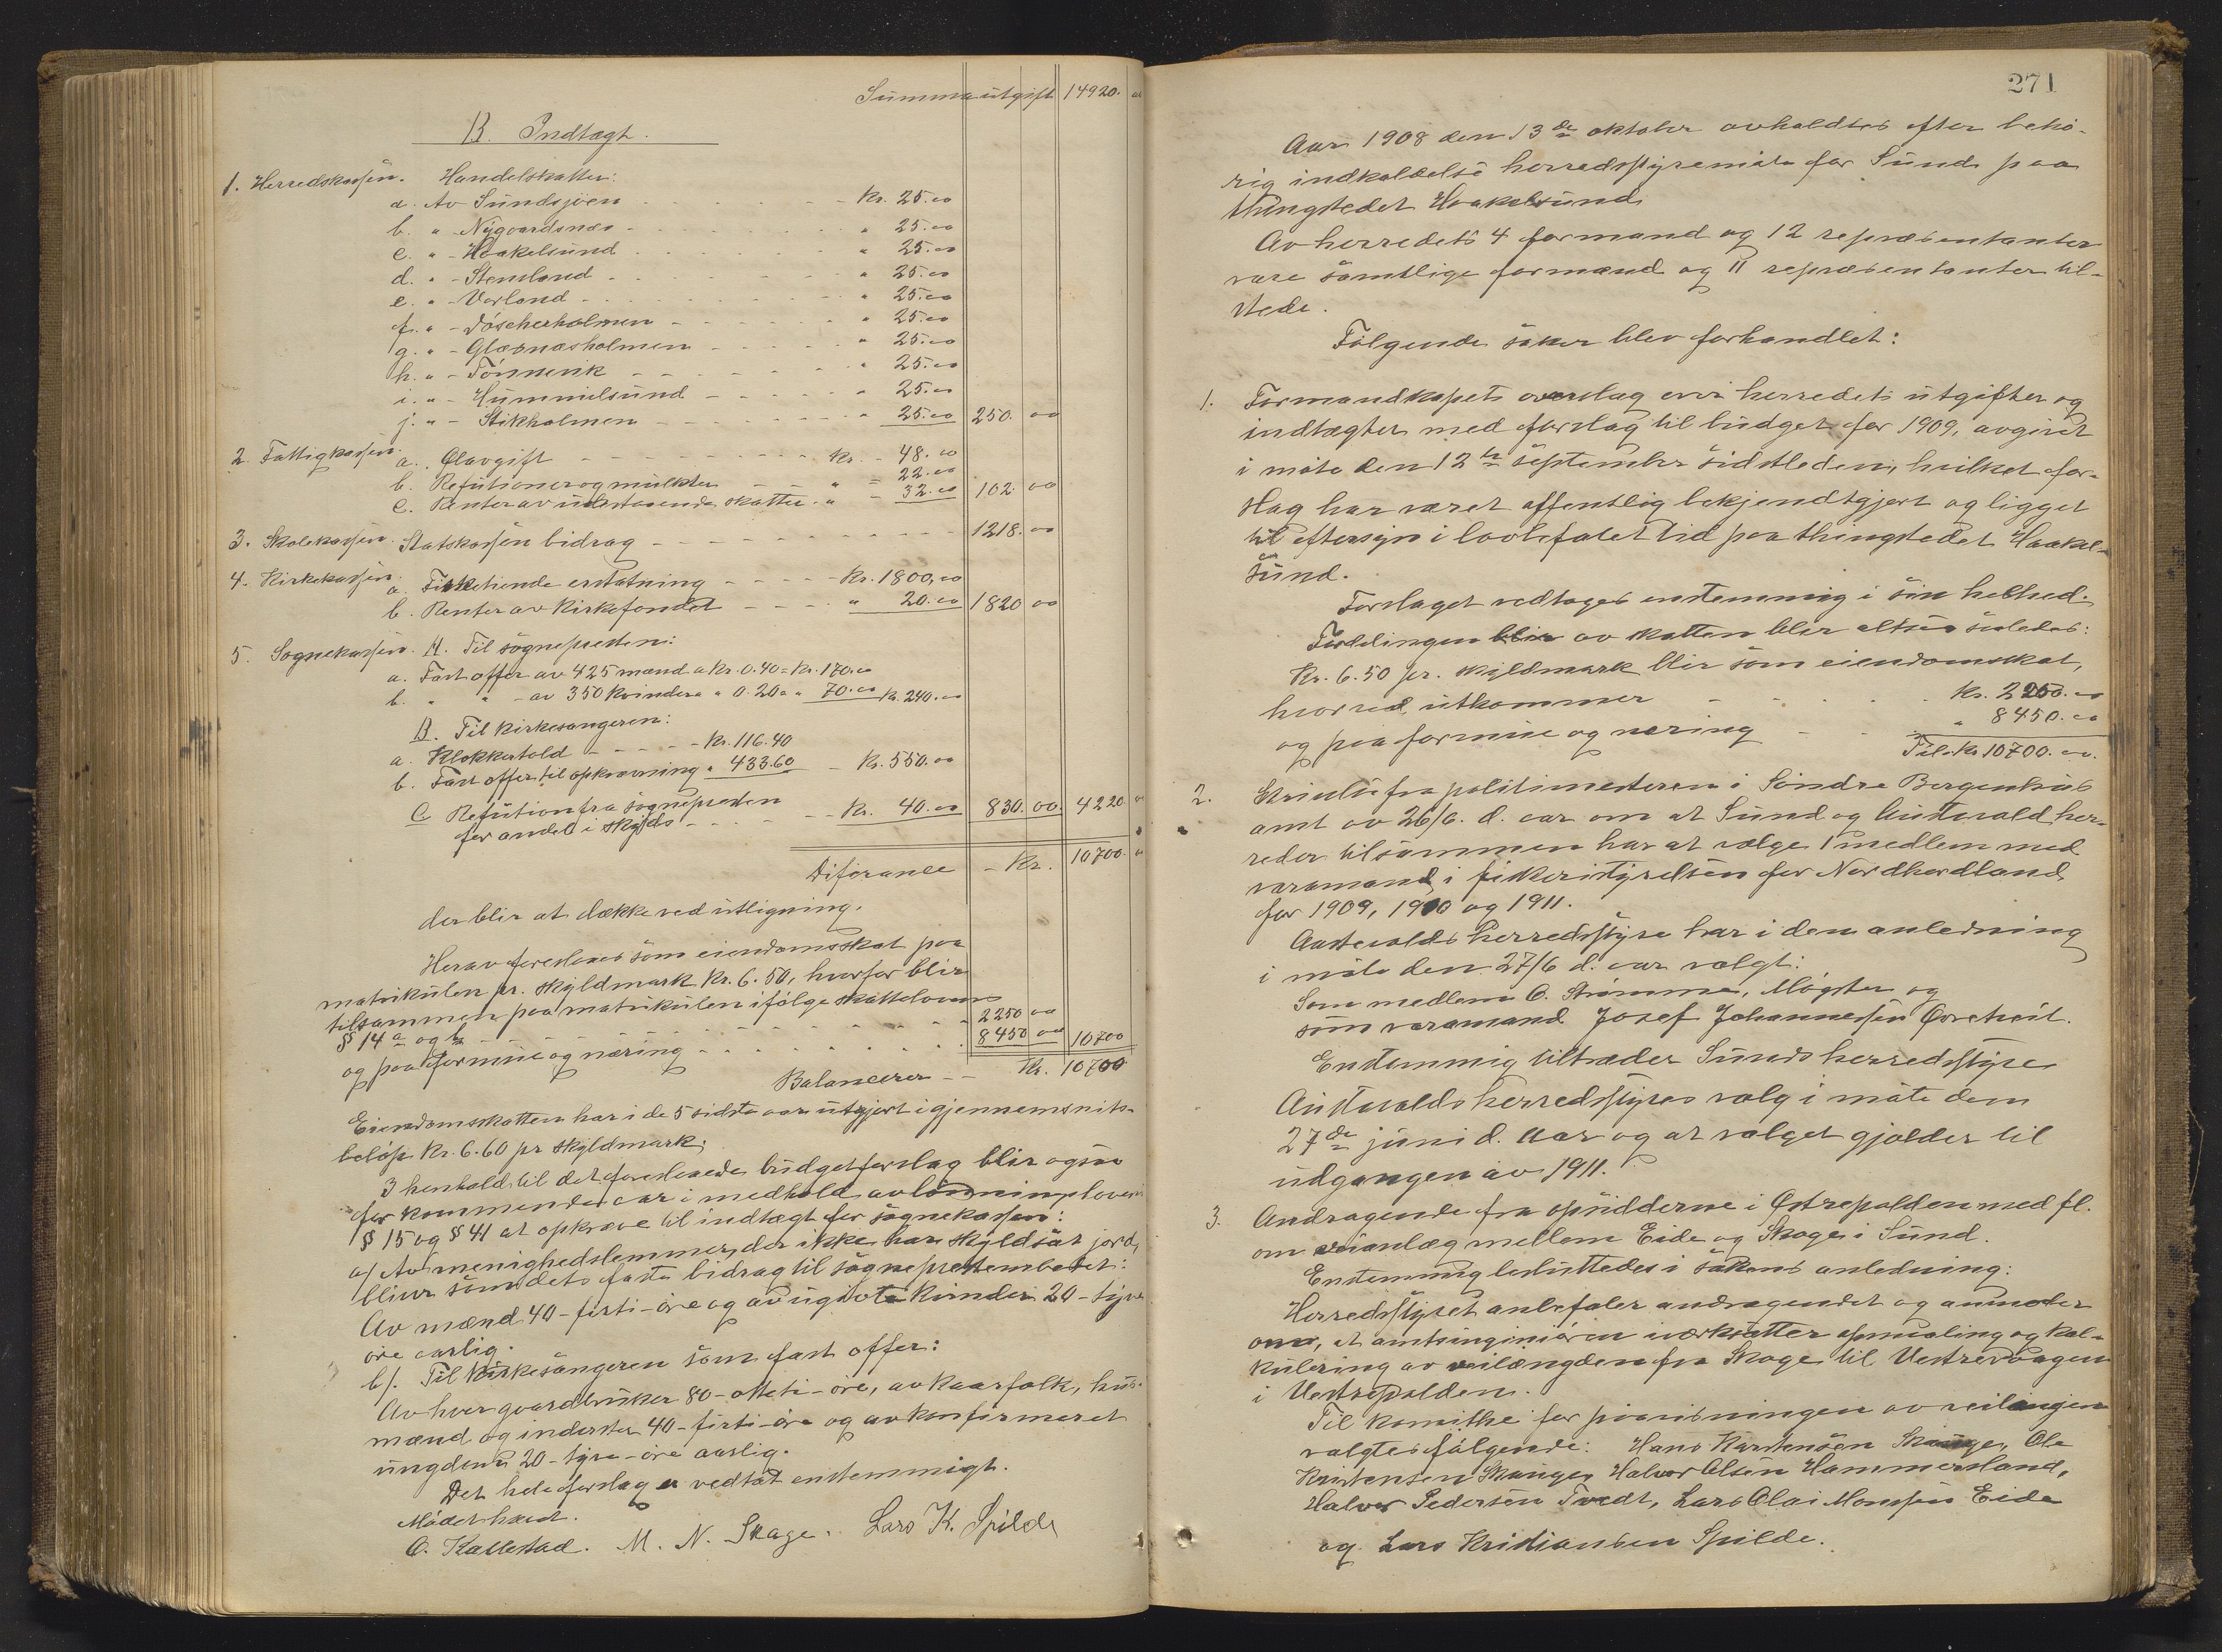 Summa utgift 14920. 00
B. Indtægt.
1. Herredskassen. Handelskatter:
a. Av Sundsjöen - - - - Kr. 25.00
b. " - Nygaardsnæs - - - - " 25.00
c. " - Haakelsund - - - - " 25.00
d. " - Stensland - - - - " 25.00
e. " - Vorland - - - - " 25.00
f. " - Döscherholmen - - - - " 25.00
g. " - Glæsnæsholmen - - - - " 25.00
h. " - - - - - " 25.00
i. " - Hummelsund - - - - " 25.00
j. " - Stikholmen - - - - " 25.00 250. 00
2. Fattigkassen. a. Ølavgift - - - - Kr. - 48.00
b. Refutioner og mulkter - - " - 22.00
c. Renter av uutestaaende skatter. " - 32.00 102. 00
3. Skolekassen. Statskassen bidrag - - - - 1218. 00
4. Kirkekassen. a. Fisketiende erstatning - - - - Kr. 1800,00
b. Renter av Kirkefondet - - - - " 20.00 1820 00
5. Sognekassen. A. Til sögnepresten:
a. Fast offer av 425 mænd a Kr. 0.40 = Kr. 170.00
b. " " - av 350 kvinder a " 0.20 = " 70.00 Kr. 240.00
B. Til Kirkesangeren:
a. Klokkertold - - - - Kr. 116.40
b. Fast offer til opkrævning " 433.60 - Kr. 550.00
C Refution fra sögnepresten
for andel i skyds - - - - Kr. 40.00 830. 00 4220. 00
Diferance - Kr. 10700. 00
der blir at dække ved utligning.
Herav foreslaaes som eiendomsskat paa
matrikulen pr. skyldmark Kr. 6.50, hvorfor blir
tilsammen paa matrikulen ifölge skatteloven
§ 14 a og b - - - - 2250 00
og paa formue og næring - - - - 8450 00 10700
Balancerer - - Kr. 10700
Eiendomsskatten har i de 5 sidste aar utgjort i gjennemsnits-
belöp Kr. 6.60 pr skyldmark.
I henhold til det foreslaaede budgetforslag blir ogsaa
for kommende aar i medhold av lönningsloven
§ 15 og § 41 at opkræve til indtægt for sognekassen:
a/ Av menighedslemmer, der ikke har skyldsat jord,
bliver som dets faste bidrag til sögneprestembedet:
Av mænd 40 - firti - öre og av ugivte kvinder 20 - tyve
öre aarlig.
b/. Til Kirkesangeren som fast offer:
Av hver gaardbruker 80 - otteti - öre, av kaarfolk, hus-
mænd og inderster 40 - firti - öre og av konfirmeret
ungdom 20 - tyve - öre aarlig.
Det hele forslag er vedtat enstemmigt.
Mödet hævet.
O. Kallestad. M. N. Skage. Lars K. Spilde
271
Aar 1908 den 13de oktober avholdtes efter behö-
rig indkaldelse herredsstyremöte for Sund paa
thingstedet Haakelsund.
Av herredets 4 formænd og 12 repræsentanter
vare samtlige formænd og 11 repræsentanter til-
stede.
Fölgende saker blev forhandlet:
1. Formandskapets overslag over herredets utgifter og
indtægter med forslag til budget for 1909, avgivet
i möte den 12te september sidstleden, hvilket for-
slag har været offentlig bekjendtgjort og ligget
til eftersyn i lovbefalet tid paa thingstedet Haakel-
sund.
Forslaget vedtages enstemmig i sin helhed.
Fordelingen blir av skatten blir altsaa saaledes:
Kr. 6.50 pr. skyldmark blir som eiendomsskat,
hvorved utkommer - - - - Kr. 2250.00
og paa formue og næring - - " 8450.00
Tils. Kr 10700.00.
2. Skrivelse fra politimesteren i Söndre Bergenhus
amt av 26/6. d. aar om at Sund og Austevold her-
reder tilsammen har at vælge 1 medlem med
varamand i fiskeristyrelsen for Nordhordland
for 1909, 1910 og 1911.
Austevolds herredsstyre har i den anledning
i möte den 27/6 d. aar valgt:
Som medlem O. Strömme, Mögster og
som varamand Josef Johannessen Östreheit.
Enstemmig tiltræder Sunds herredsstyre
Austevolds herredsstyres valg i möte den
27de juni d. aar og at valget gjælder til
udgangen av 1911.
3. Andragende fra opsidderne i Østrepolden med fl.
om veianlæg mellem Eide og Skage i Sund.
Enstemmig besluttedes i sakens anledning:
Herredsstyret anbefaler andragendet og anmoder
om, at amtsingeniören iverksætter opmaaling og kal-
kulering av veilængden fra Skage til Vestrevaagen
i Vestrepolden.
Til komithe for paavisningen av veilinjen
valgtes fölgende: Hans Karstensen Skauge, Ole
Kristensen Skauge, Halvor Olsen Hammersland,
Halvor Pedersen Tvedt, Lars Olai Monssen Eide
og Lars Kristiansen Spilde.